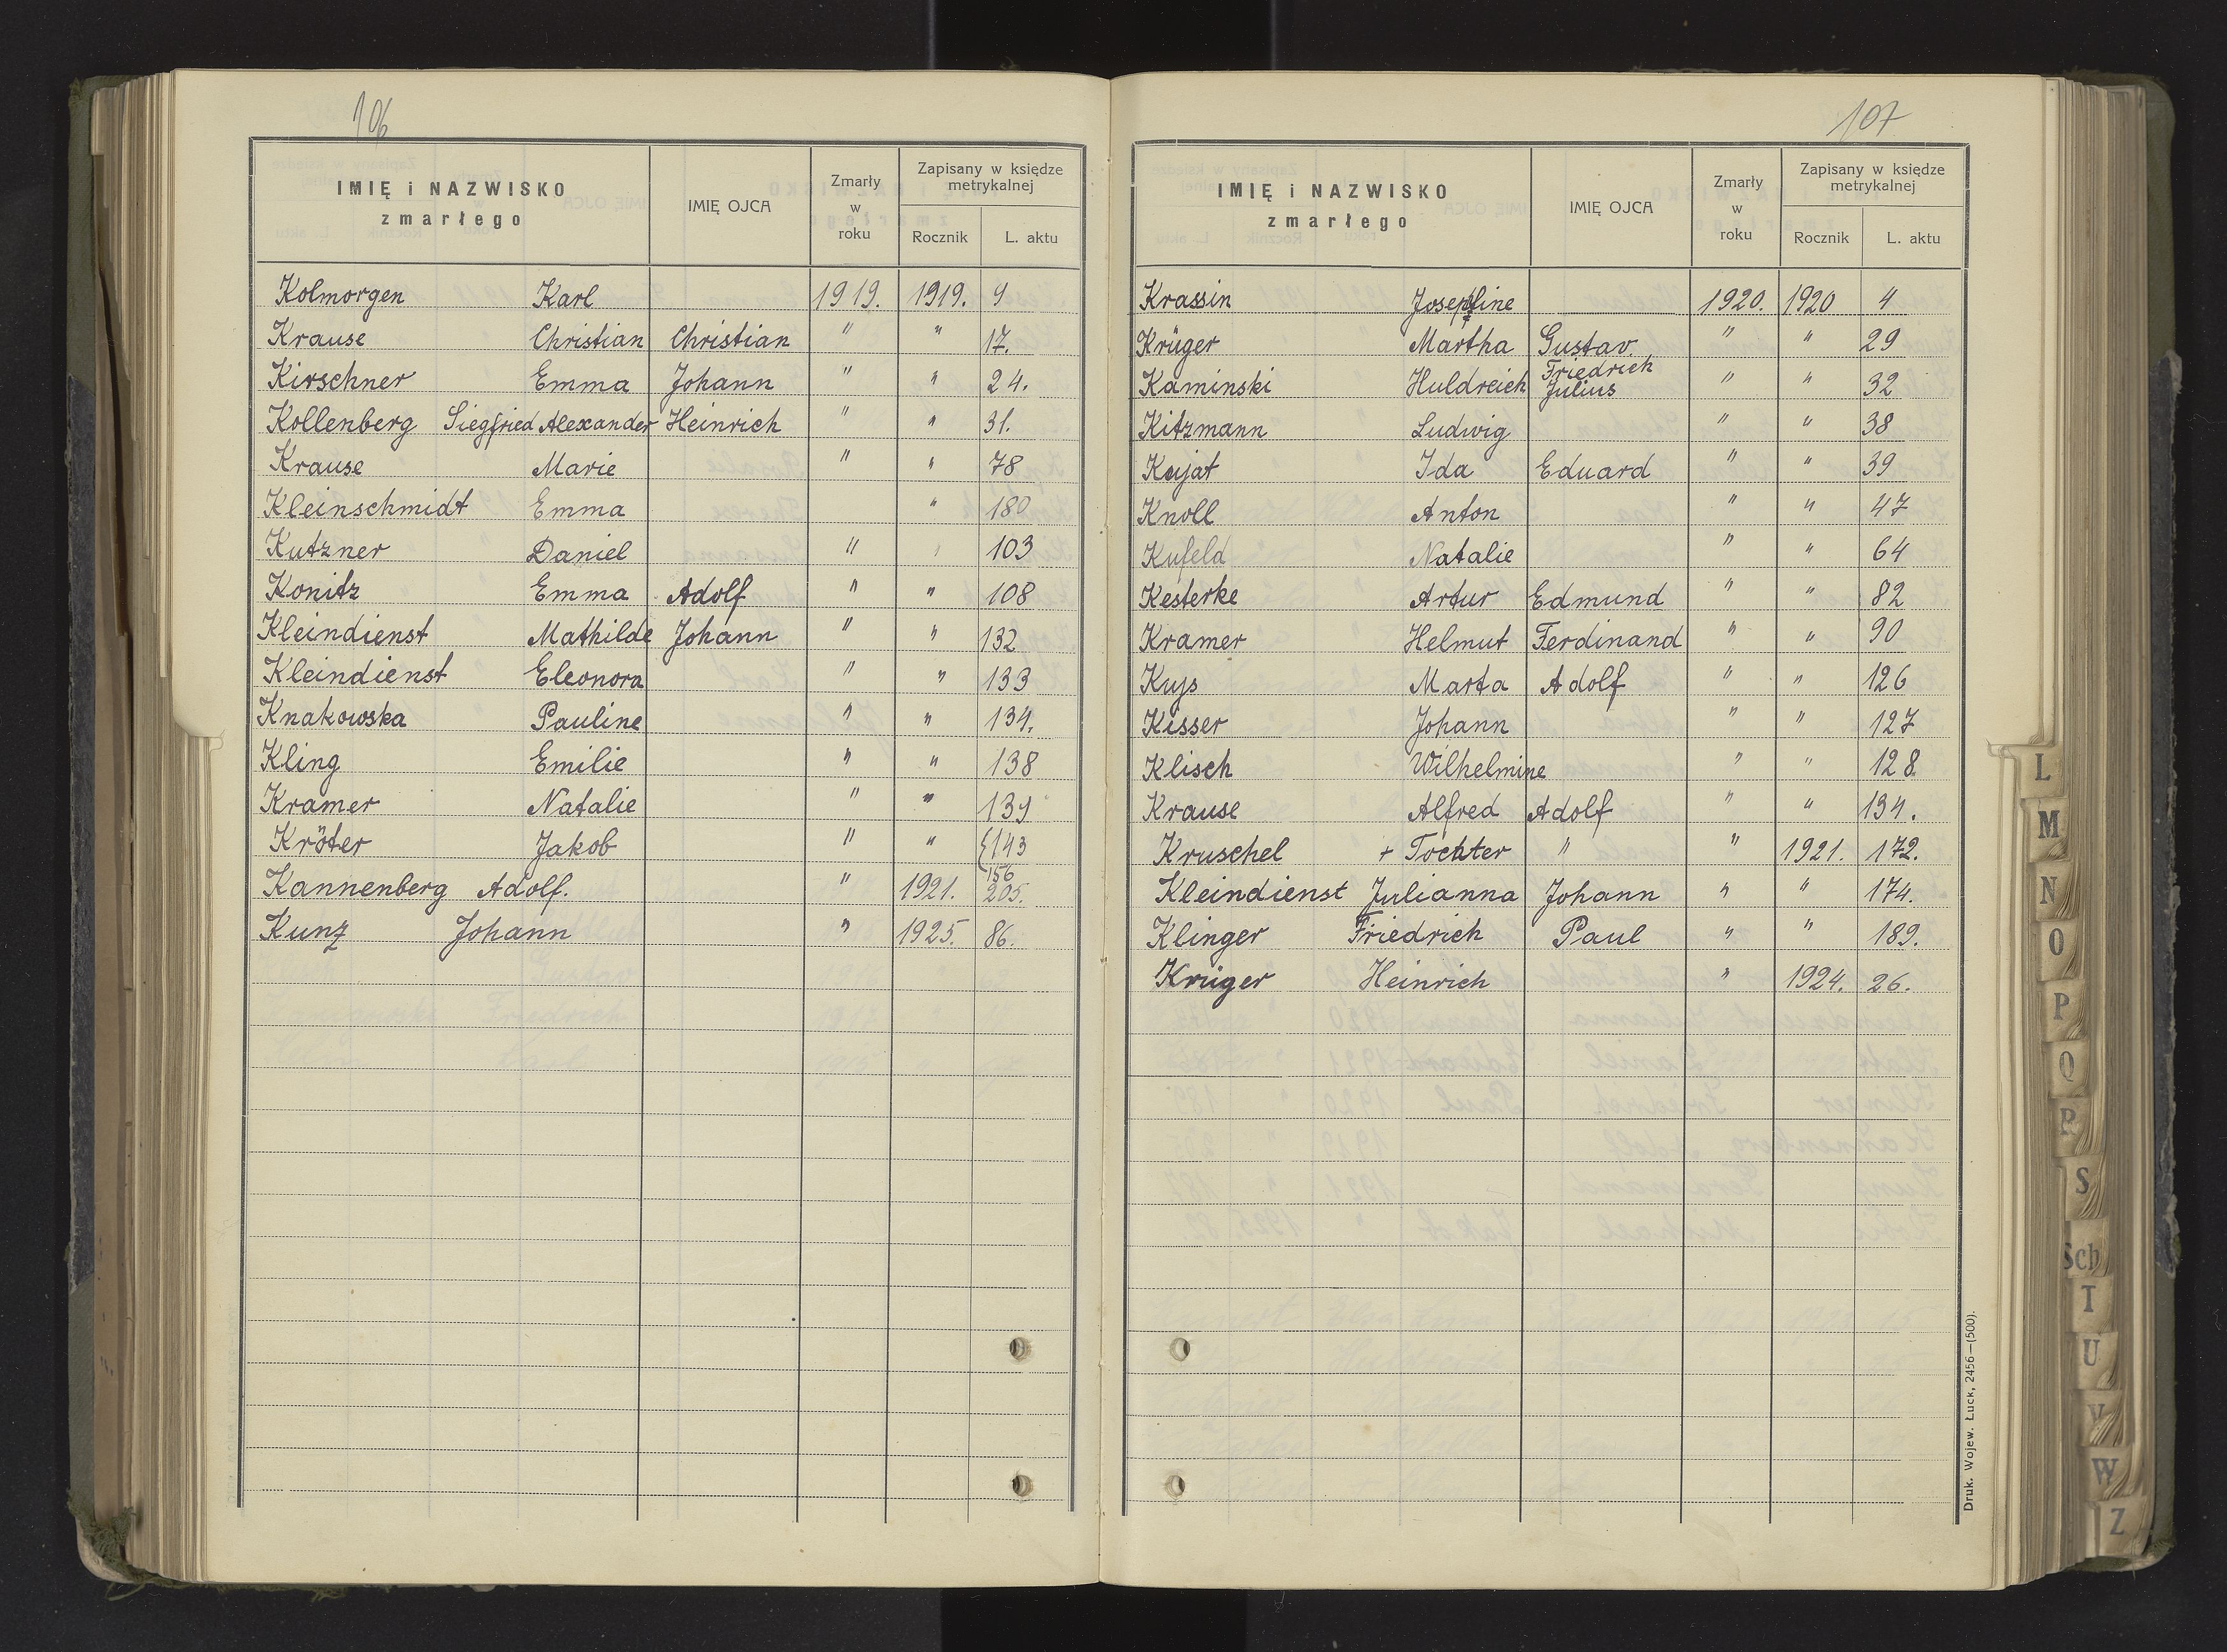 106
IMIĘ i NAZWISKO zmarłego | IMIĘ OJCA | Zmarły w roku | Zapisany w księdze metrykalnej
Rocznik | L. aktu
Kolmorgen Karl | | 1919. | 1919. | 9
Krause Christian | Christian | " | " | 17.
Kirschner Emma | Johann | " | " | 24.
Kollenberg Siegfried Alexander | Heinrich | " | " | 31.
Krause Marie | | " | " | 78
Kleinschmidt Emma | | | " | 180
Kutzner Daniel | | " | | 103
Konitz Emma | Adolf | " | " | 108
Kleindienst Mathilde | Johann | " | " | 132
Kleindienst Eleonora | | " | " | 133
Knakowska Pauline | | " | " | 134.
Kling Emilie | | " | " | 138
Kramer Natalie | | " | " | 139
Kröter Jakob | | " | " | {143 156
Kannenberg Adolf. | | " | 1921. | 205.
Kunz Johann | | " | 1925. | 86.
107
IMIĘ i NAZWISKO zmarłego | IMIĘ OJCA | Zmarły w roku | Zapisany w księdze metrykalnej
Rocznik | L. aktu
Krassin Josephine | | 1920. | 1920 | 4
Krüger Martha | Gustav. | " | " | 29
Kaminski Huldreich | Friedrich Julius | " | " | 32
Kitzmann Ludwig | | " | " | 38
Kujat Ida | Eduard | " | " | 39
Knoll Anton | | " | " | 47
Kufeld Natalie | | " | " | 64
Kesterke Artur | Edmund | " | " | 82
Kramer Helmut | Ferdinand | " | " | 90
Kujs Marta | Adolf | " | " | 126
Kisser Johann | | " | " | 127
Klisch Wilhelmine | | " | " | 128.
Krause Alfred | Adolf | " | " | 134.
Kruschel + Tochter | " | " | 1921. | 172.
Kleindienst Julianna | Johann | " | " | 174.
Klinger Friedrich | Paul | " | " | 189.
Krüger Heinrich | | " | 1924. | 26.
Druk. Wojew. Łuck, 2456—(500).
L
M
N
O
P
Q
R
S
Sch
T
U
V
W
Z